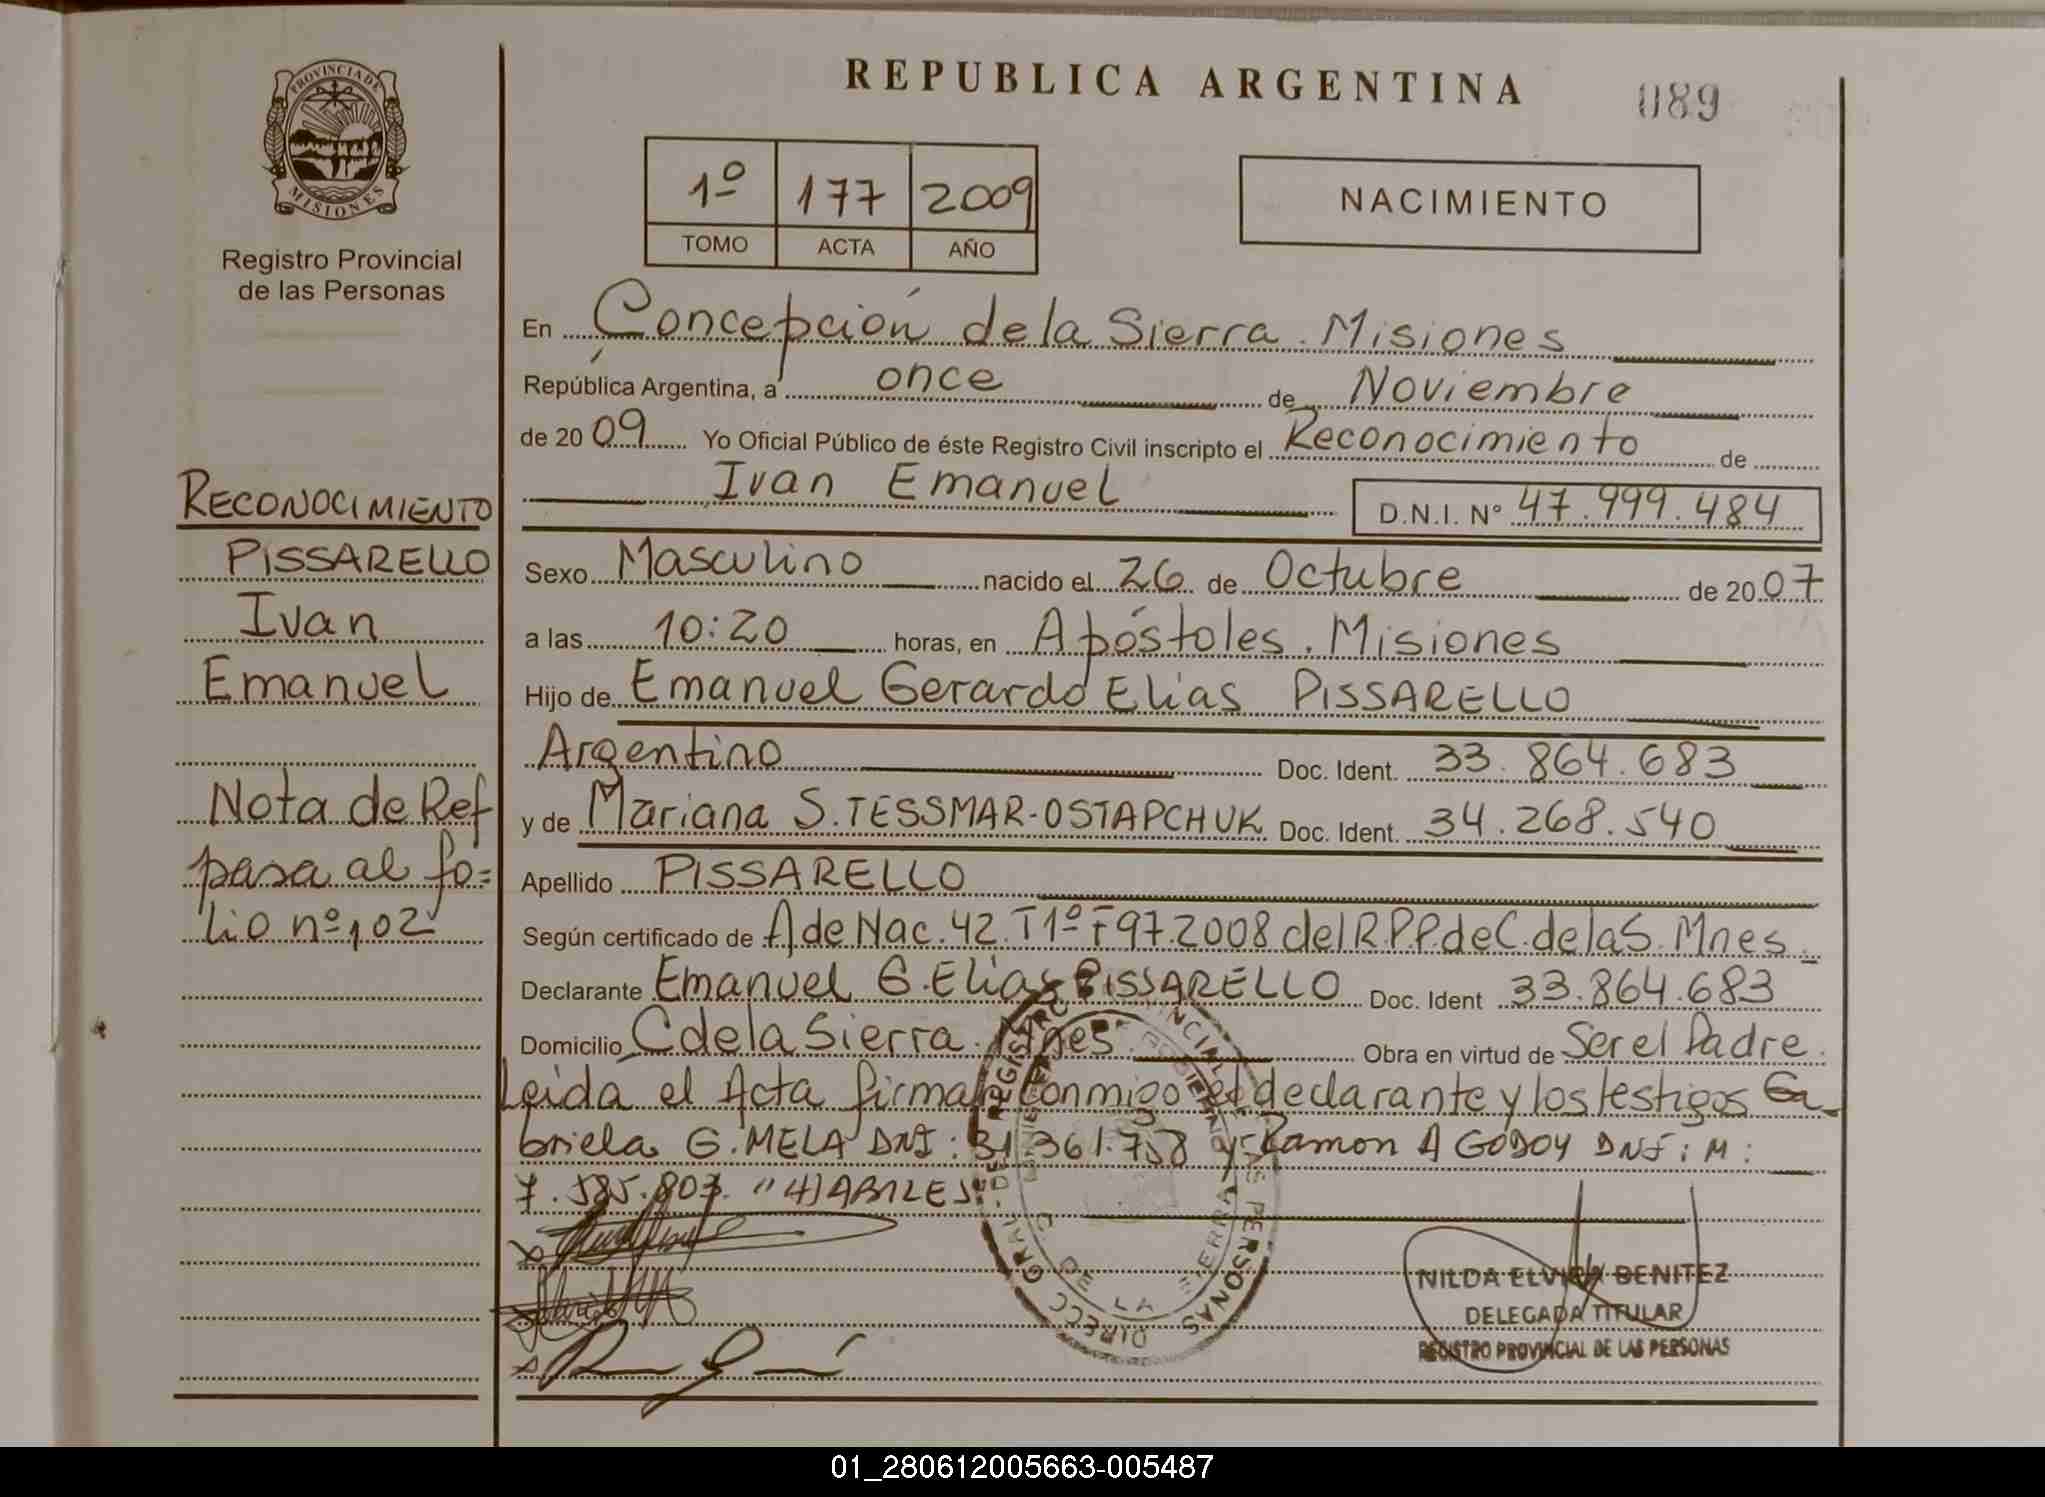 REPUBLICA ARGENTINA
089
PROVINCIA DE
MISIONES
Registro Provincial
de las Personas
1º 177 2009
TOMO ACTA AÑO
NACIMIENTO
En Concepción de la Sierra. Misiones
República Argentina, a once de Noviembre
de 20 09 Yo Oficial Público de éste Registro Civil inscripto el Reconocimiento de
Ivan Emanuel D.N.I. Nº 47.999.484
Sexo Masculino nacido el 26 de Octubre de 20 07
a las 10:20 horas, en Apóstoles. Misiones
Hijo de Emanuel Gerardo Elias PISSARELLO
Argentino Doc. Ident. 33.864.683
y de Mariana S. TESSMAR-OSTAPCHUK Doc. Ident. 34.268.540
Apellido PISSARELLO
Según certificado de A de Nac. 42. T 1º F 97. 2008 del R.P.P. de C. de la S. Mnes.
Declarante Emanuel G. Elias PISSARELLO Doc. Ident 33.864.683
Domicilio C de la Sierra. Mnes Obra en virtud de Ser el Padre.
Leida el Acta firman conmigo el declarante y los testigos Ga-
briela G. MELA DNI: 31.361.758 y Ramon A GODOY DNI: M:
7.585.807. "HABILES".
RECONOCIMIENTO
PISSARELLO
Ivan
Emanuel
Nota de Ref
pasa al fo=
lio nº 102
DIRECC GRAL DE REGISTRO PROVINCIAL DE LAS PERSONAS
C DE LA SIERRA
NILDA ELVIRA BENITEZ
DELEGADA TITULAR
REGISTRO PROVINCIAL DE LAS PERSONAS
01_280612005663-005487